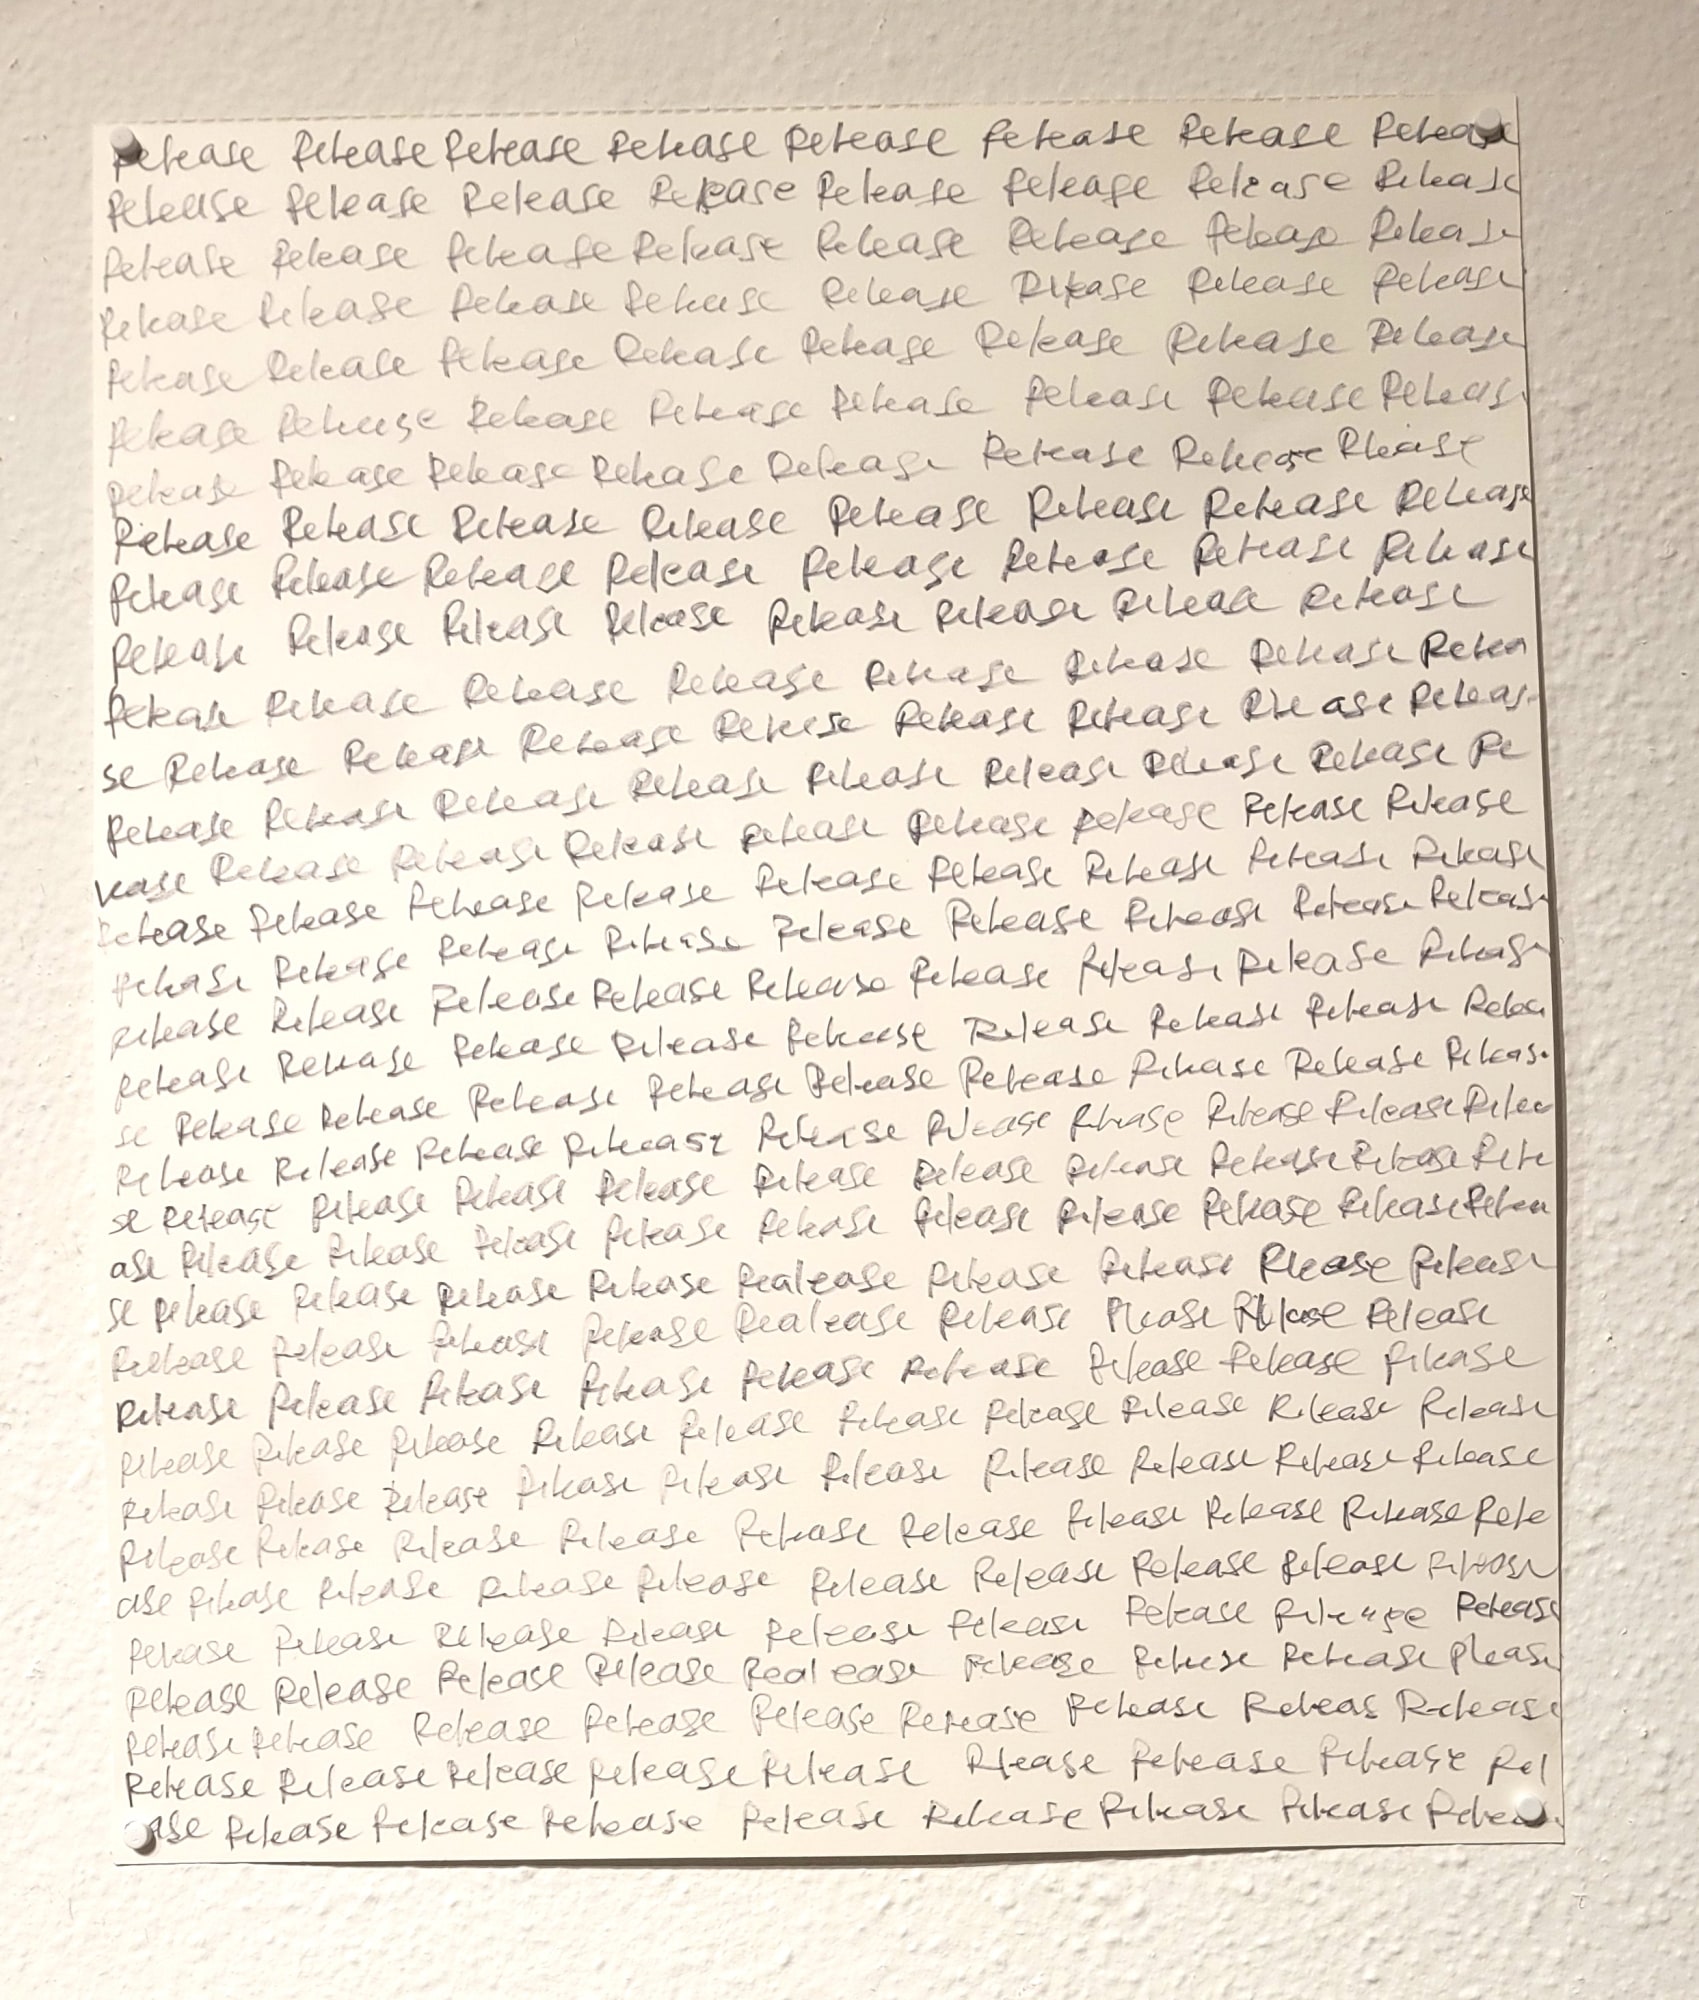 Release Release Release Release Release Release Release Release
Release Release Release Release Release Release Release Releas
Release Release Release Release Release Release Release Release
Release Release Release Release Release Release Release Release
Release Release Release Release Release Release Release Release
Release Release Release Release Release Release Release Releas
Release Release Release Release Release Release Release Rlease
Release Release Release Release Release Release Release Release
Release Release Release Release Release Release Release Release
Release Release Release Release Release Release Release Release
Release Release Release Release Release Release Release Relea
se Release Release Release Release Release Release Release Releas
Release Release Release Release Release Release Release Release Re
lease Release Release Release Release Release Release Release Release
Release Release Release Release Release Release Release Release Release
Release Release Release Release Release Release Release Release Releas
Release Release Release Release Release Release Release Release Release
Release Release Release Release Release Release Release Release Relea
se Release Release Release Release Release Release Release Release Releas
Release Release Release Release Release Release Release Release Release Relea
se Release Release Release Release Release Release Release Release Release Rele
ase Release Release Release Release Release Release Release Release Release Relea
se Release Release Release Release Realease Release Release Rlease Release
Release Release Release Release Realease Release Please Release Release
Release Release Release Release Release Release Release Release Release
Release Release Release Release Release Release Release Release Release Release
Release Release Release Release Release Release Release Release Release Release
Release Release Release Release Release Release Release Release Release Rele
ase Release Release Release Release Release Release Release Release Release
Release Release Release Release Release Release Release Release Release
Release Release Release Release Realease Release Release Release Please
Release Release Release Release Release Release Release Releas Release
Release Release Release Release Release Rlease Release Release Rel
ease Release Release Release Release Release Release Release Releas